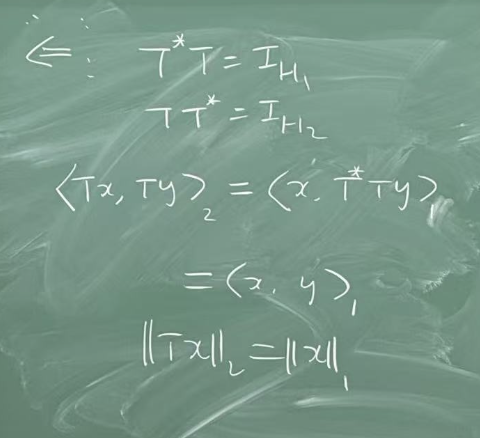 ⇐: T*T = I_H₁
TT* = I_H₂
⟨Tx, Ty⟩₂ = ⟨x, T*Ty⟩₁
= ⟨x, y⟩₁
||Tx||₂ = ||x||₁